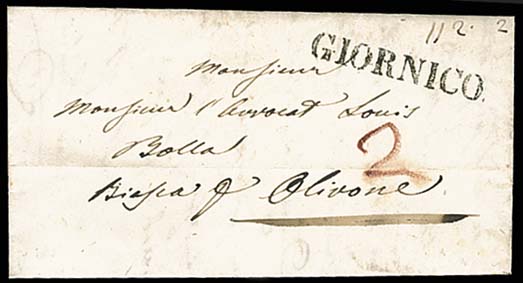 112. 2
GIORNICO.
Monsieur
Monsieur l'Avocat Louis
Bolla
2
Biasca &  Olivone